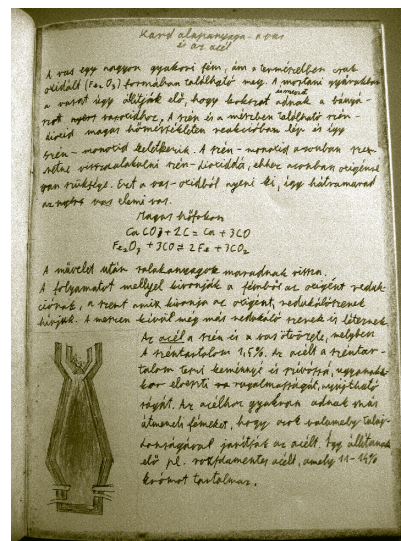 Kard alapanyaga - a vas
és az acél
A vas egy nagyon gyakori fém, ám a természetben csak
oxidált (Fe₂O₃) formában található meg. A mostani gyárakban
a vasat úgy állítják elő, hogy kokszot adnak a bányá-
szott nyers vasoxidhoz. A szén és a mészben található szén-
dioxid magas hőmérsékleten reakcióban lép és így
szén-monoxid keletkezik. A szén-monoxid azonban szer-
retne visszaalakulni szén-dioxiddá, ehhez azonban oxigénre
van szüksége. Ezt a vas-oxidból nyeri ki, így hátramarad
az nyers vas elemi vas.
Magas hőfokon
CaCO₃ + 2C = Ca + 3CO
Fe₂O₃ + 3CO ⇄ 2Fe + 3CO₂
A művelet után salakanyagok maradnak vissza.
A folyamatot mellyel kivonják a fémből az oxigént reduk-
ciónak, a szent amix kivonja az oxigént, redukálószernek
hívják. A mészen kívül még más redukáló szerek is léteznek.
Az acél a szén és a vas ötvözete, melyben
A széntartalom 1,5%. Az acélt a széntar-
talom teszi keménnyé és szívóssá, ugyanak-
kor elveszti va rugalmasságát, nyújtható
ságát. Az acélhoz gyakran adnak más
átmeneti fémeket, hogy azok valamely tulaj-
donságával javítják az acélt. Így állítanak
elő pl. rozsdamentes acélt, amely 11-14%
krómot tartalmaz.